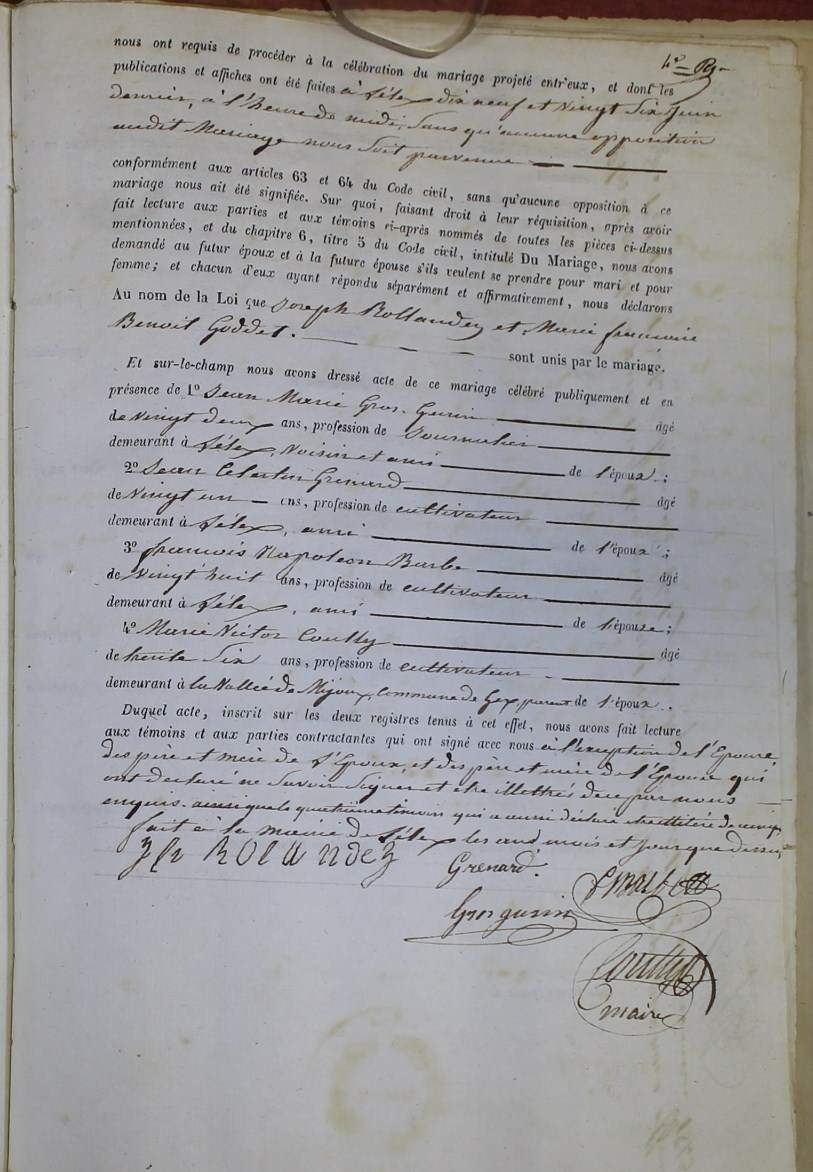 nous ont requis de procéder à la célébration du mariage projeté entr'eux, et dont les
publications et affiches ont été faites à Lélex dix neuf et Vingt Six Juin
dernier, à l'heure de midi, Sans qu'aucune opposition
audit Mariage nous Soit parvenue
conformément aux articles 63 et 64 du Code civil, sans qu'aucune opposition à ce
mariage nous ait été signifiée. Sur quoi, faisant droit à leur réquisition, après avoir
fait lecture aux parties et aux témoins ci-après nommés de toutes les pièces ci-dessus
mentionnées, et du chapitre 6, titre 5 du Code civil, intitulé Du Mariage, nous avons
demandé au futur époux et à la future épouse s'ils veulent se prendre pour mari et pour
femme; et chacun d'eux ayant répondu séparément et affirmativement, nous déclarons
Au nom de la Loi que Joseph Rollandez et Marie françoise
Benoit Goddet.
sont unis par le mariage.
Et sur-le-champ nous avons dressé acte de ce mariage célébré publiquement et en
présence de 1º Jean Marie Gros-Gurin âgé
de Vingt deux ans, profession de Journalier
demeurant à Lélex, Voisin et ami de l'époux;
2º Jean Célestin Grenard âgé
de Vingt un ans, profession de cultivateur
demeurant à Lélex, ami de l'époux;
3º francois Napoléon Barbe âgé
de Vingt huit ans, profession de cultivateur
demeurant à Lélex, ami de l'épouse;
4º Marie Victor Coutty âgé
de trente Six ans, profession de cultivateur
demeurant à la Vallée de Mijoux, Commune de Gex, parent de l'époux.
Duquel acte, inscrit sur les deux registres tenus à cet effet, nous avons fait lecture
aux témoins et aux parties contractantes qui ont signé avec nous à l'exception de l'Epouse,
des père et mère de l'Epoux, et des père et mère de l'Epouse qui
ont déclaré ne Savoir Signer et être illettrés de ce par nous
enquis. ainsi que le quatrième témoin qui a aussi déclaré être illétéré
fait à la mairie de Lélex les and, mois et jour que dessus,
Jh ROLANDEZ
Grenard.
Gros gurin
maire